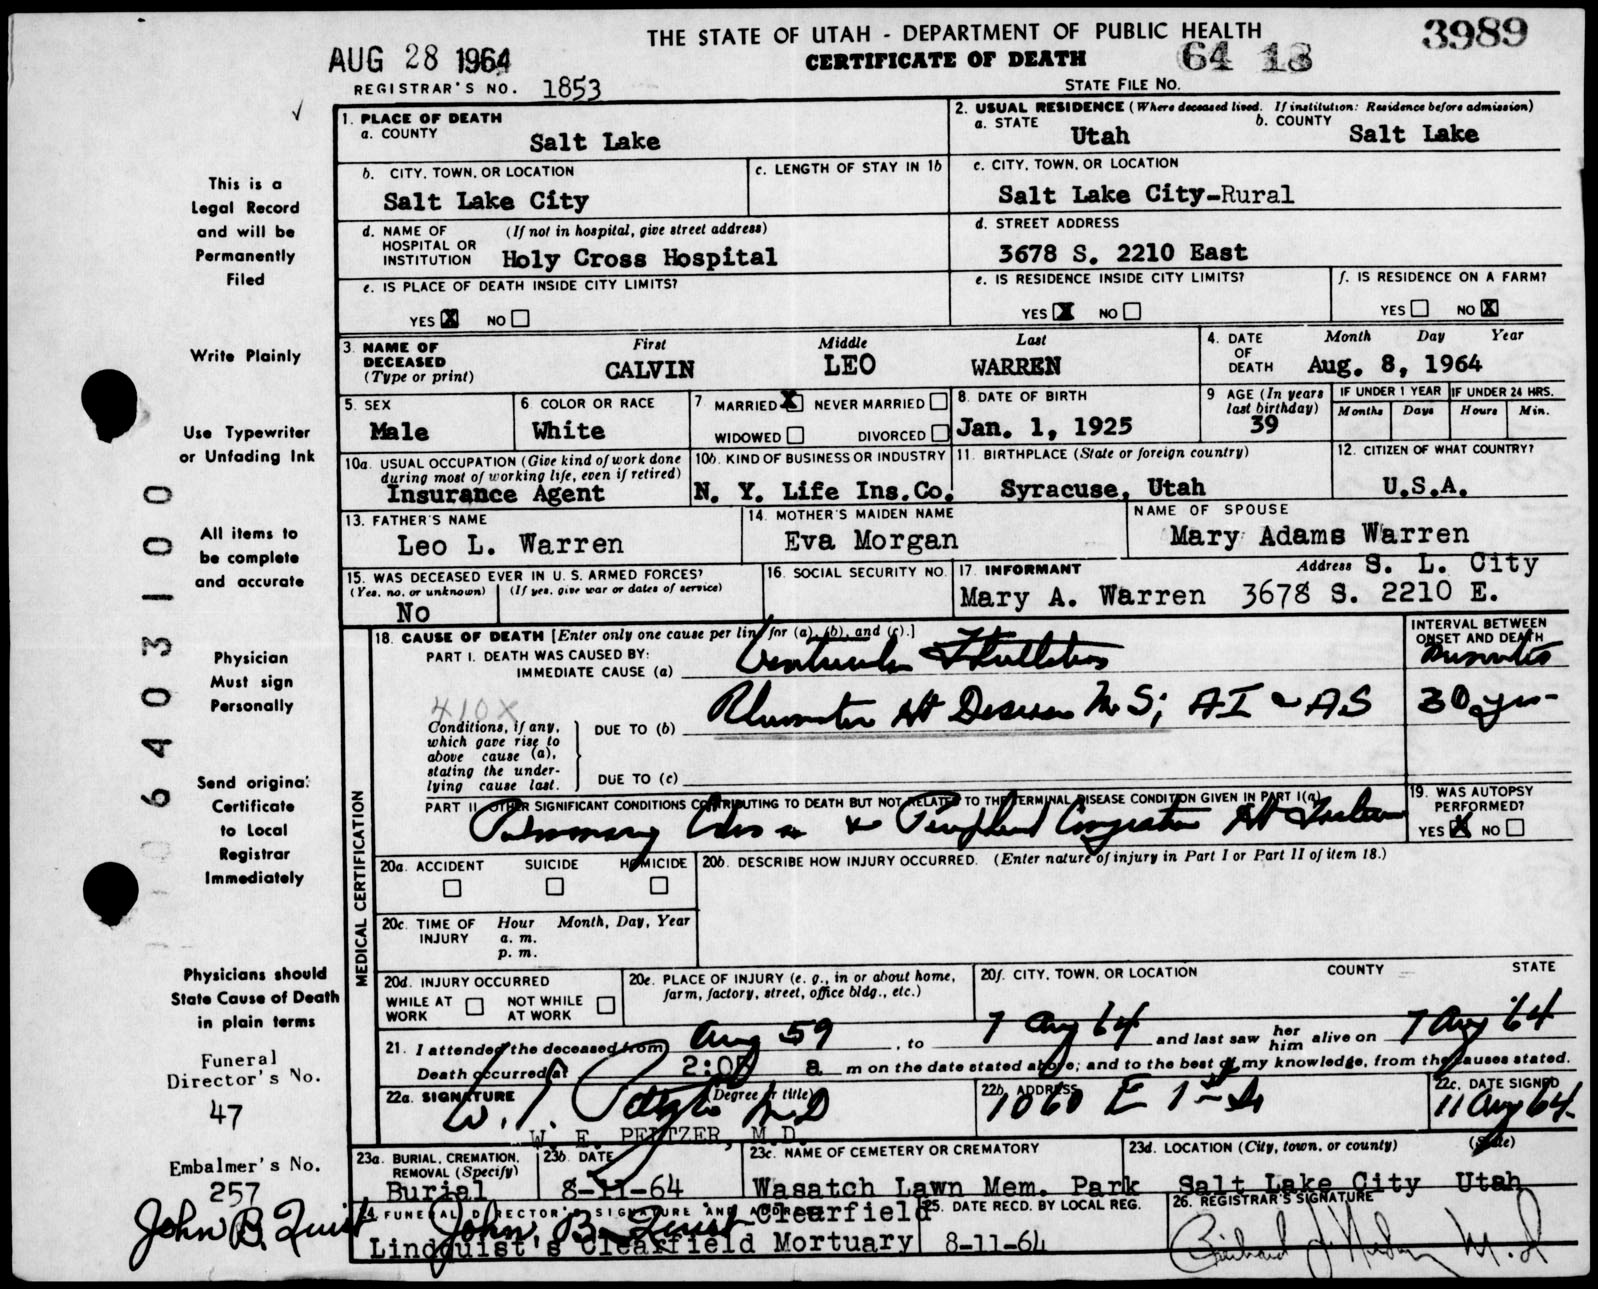 THE STATE OF UTAH - DEPARTMENT OF PUBLIC HEALTH
3989
AUG 28 1964
CERTIFICATE OF DEATH
64 18
REGISTRAR'S NO. 1853
STATE FILE NO.
1. PLACE OF DEATH
a. COUNTY
Salt Lake
2. USUAL RESIDENCE (Where deceased lived. If institution: Residence before admission)
a. STATE
Utah
b. COUNTY
Salt Lake
b. CITY, TOWN, OR LOCATION
Salt Lake City
c. LENGTH OF STAY IN 1b
c. CITY, TOWN, OR LOCATION
Salt Lake City-Rural
d. NAME OF HOSPITAL OR INSTITUTION
(If not in hospital, give street address)
Holy Cross Hospital
d. STREET ADDRESS
3678 S. 2210 East
e. IS PLACE OF DEATH INSIDE CITY LIMITS?
YES X NO
e. IS RESIDENCE INSIDE CITY LIMITS?
YES X NO
f. IS RESIDENCE ON A FARM?
YES NO X
3. NAME OF DECEASED
(Type or print)
First
CALVIN
Middle
LEO
Last
WARREN
4. DATE OF DEATH
Month Day Year
Aug. 8, 1964
5. SEX
Male
6. COLOR OR RACE
White
7 MARRIED X NEVER MARRIED
WIDOWED DIVORCED
8. DATE OF BIRTH
Jan. 1, 1925
9 AGE (In years last birthday)
39
IF UNDER 1 YEAR
Months Days
IF UNDER 24 HRS.
Hours Min.
10a. USUAL OCCUPATION (Give kind of work done during most of working life, even if retired)
Insurance Agent
10b. KIND OF BUSINESS OR INDUSTRY
N. Y. Life Ins.Co.
11. BIRTHPLACE (State or foreign country)
Syracuse, Utah
12. CITIZEN OF WHAT COUNTRY?
U.S.A.
13. FATHER'S NAME
Leo L. Warren
14. MOTHER'S MAIDEN NAME
Eva Morgan
NAME OF SPOUSE
Mary Adams Warren
15. WAS DECEASED EVER IN U.S. ARMED FORCES?
(Yes, no, or unknown) (If yes, give war or dates of service)
No
16. SOCIAL SECURITY NO.
17. INFORMANT
Address S. L. City
Mary A. Warren 3678 S. 2210 E.
MEDICAL CERTIFICATION
18. CAUSE OF DEATH [Enter only one cause per line for (a), (b), and (c).]
INTERVAL BETWEEN ONSET AND DEATH
PART I. DEATH WAS CAUSED BY:
IMMEDIATE CAUSE (a) Ventricular
Minutes
410X
Conditions, if any, which gave rise to above cause (a), stating the underlying cause last.
DUE TO (b) Rheumatic Ht Disease M S; AI AS
30 yrs
DUE TO (c)
PART II. OTHER SIGNIFICANT CONDITIONS CONTRIBUTING TO DEATH BUT NOT RELATED TO THE TERMINAL DISEASE CONDITION GIVEN IN PART I(a)
Pulmonary Edema Peripheral Congestion Ht Failure
19. WAS AUTOPSY PERFORMED?
YES X NO
20a. ACCIDENT SUICIDE HOMICIDE
20b. DESCRIBE HOW INJURY OCCURRED. (Enter nature of injury in Part I or Part II of item 18.)
20c. TIME OF INJURY
Hour Month, Day, Year
a. m.
p. m.
20d. INJURY OCCURRED
WHILE AT WORK NOT WHILE AT WORK
20e. PLACE OF INJURY (e. g., in or about home, farm, factory, street, office bldg., etc.)
20f. CITY, TOWN, OR LOCATION COUNTY STATE
21. I attended the deceased from Aug 59, to 7 Aug 64 and last saw her him alive on 7 Aug '64
Death occurred at 2:05 a. m on the date stated above; and to the best of my knowledge, from the causes stated.
22a. SIGNATURE (Degree or title)
M D
W. E. PELTZER, M.D.
22b. ADDRESS
1060 E 1st So
22c. DATE SIGNED
11 Aug 64
23a. BURIAL, CREMATION, REMOVAL (Specify)
Burial
23b. DATE
8-11-64
23c. NAME OF CEMETERY OR CREMATORY
Wasatch Lawn Mem. Park
23d. LOCATION (City, town, or county) (State)
Salt Lake City Utah
24. FUNERAL DIRECTOR'S SIGNATURE AND ADDRESS
John B. Quist Clearfield
Lindquist's Clearfield Mortuary
25. DATE RECD. BY LOCAL REG.
8-11-64
26. REGISTRAR'S SIGNATURE
Richard M.D
This is a
Legal Record
and will be
Permanently
Filed
Write Plainly
Use Typewriter
or Unfading Ink
All items to
be complete
and accurate
Physician
Must sign
Personally
Send original
Certificate
to Local
Registrar
Immediately
Physicians should
State Cause of Death
in plain terms
Funeral
Director's No.
47
Embalmer's No.
257
John B. Quist
0 6 4 0 3 1 0 0